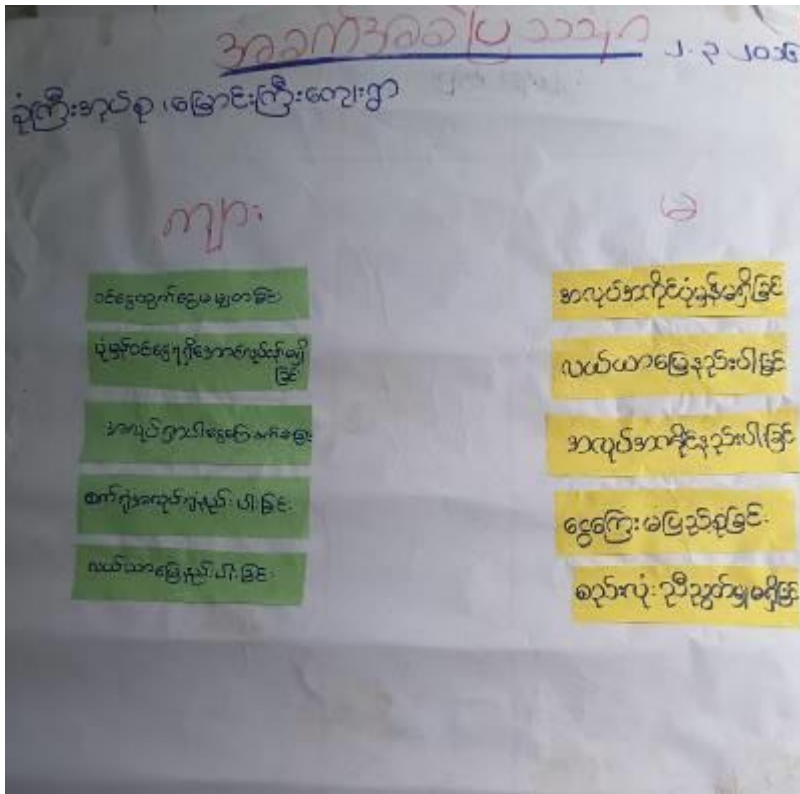 အခက်အခဲပြဿနာ ၂.၃.၂၀၁၆
ခုံကြီးအုပ်စု၊ မြောင်းကြီးကျေးရွာ
ကျား
မ
ဝင်ငွေထွက်ငွေမမျှတခြင်း
ပုံမှန်ဝင်ငွေရရှိအောင်လုပ်ရန်မရှိ
ခြင်း
အလုပ်ရှားပါးငွေကြေးခက်ခဲခြင်း
စက်ရုံအလုပ်ရုံနည်းပါးခြင်း
လယ်ယာမြေနည်းပါးခြင်း
အလုပ်အကိုင်ပုံမှန်မရှိခြင်း
လယ်ယာမြေနည်းပါးခြင်း
အလုပ်အကိုင်နည်းပါးခြင်း
ငွေကြေးမပြည့်စုံခြင်း
စည်းလုံးညီညွတ်မှုမရှိခြင်း